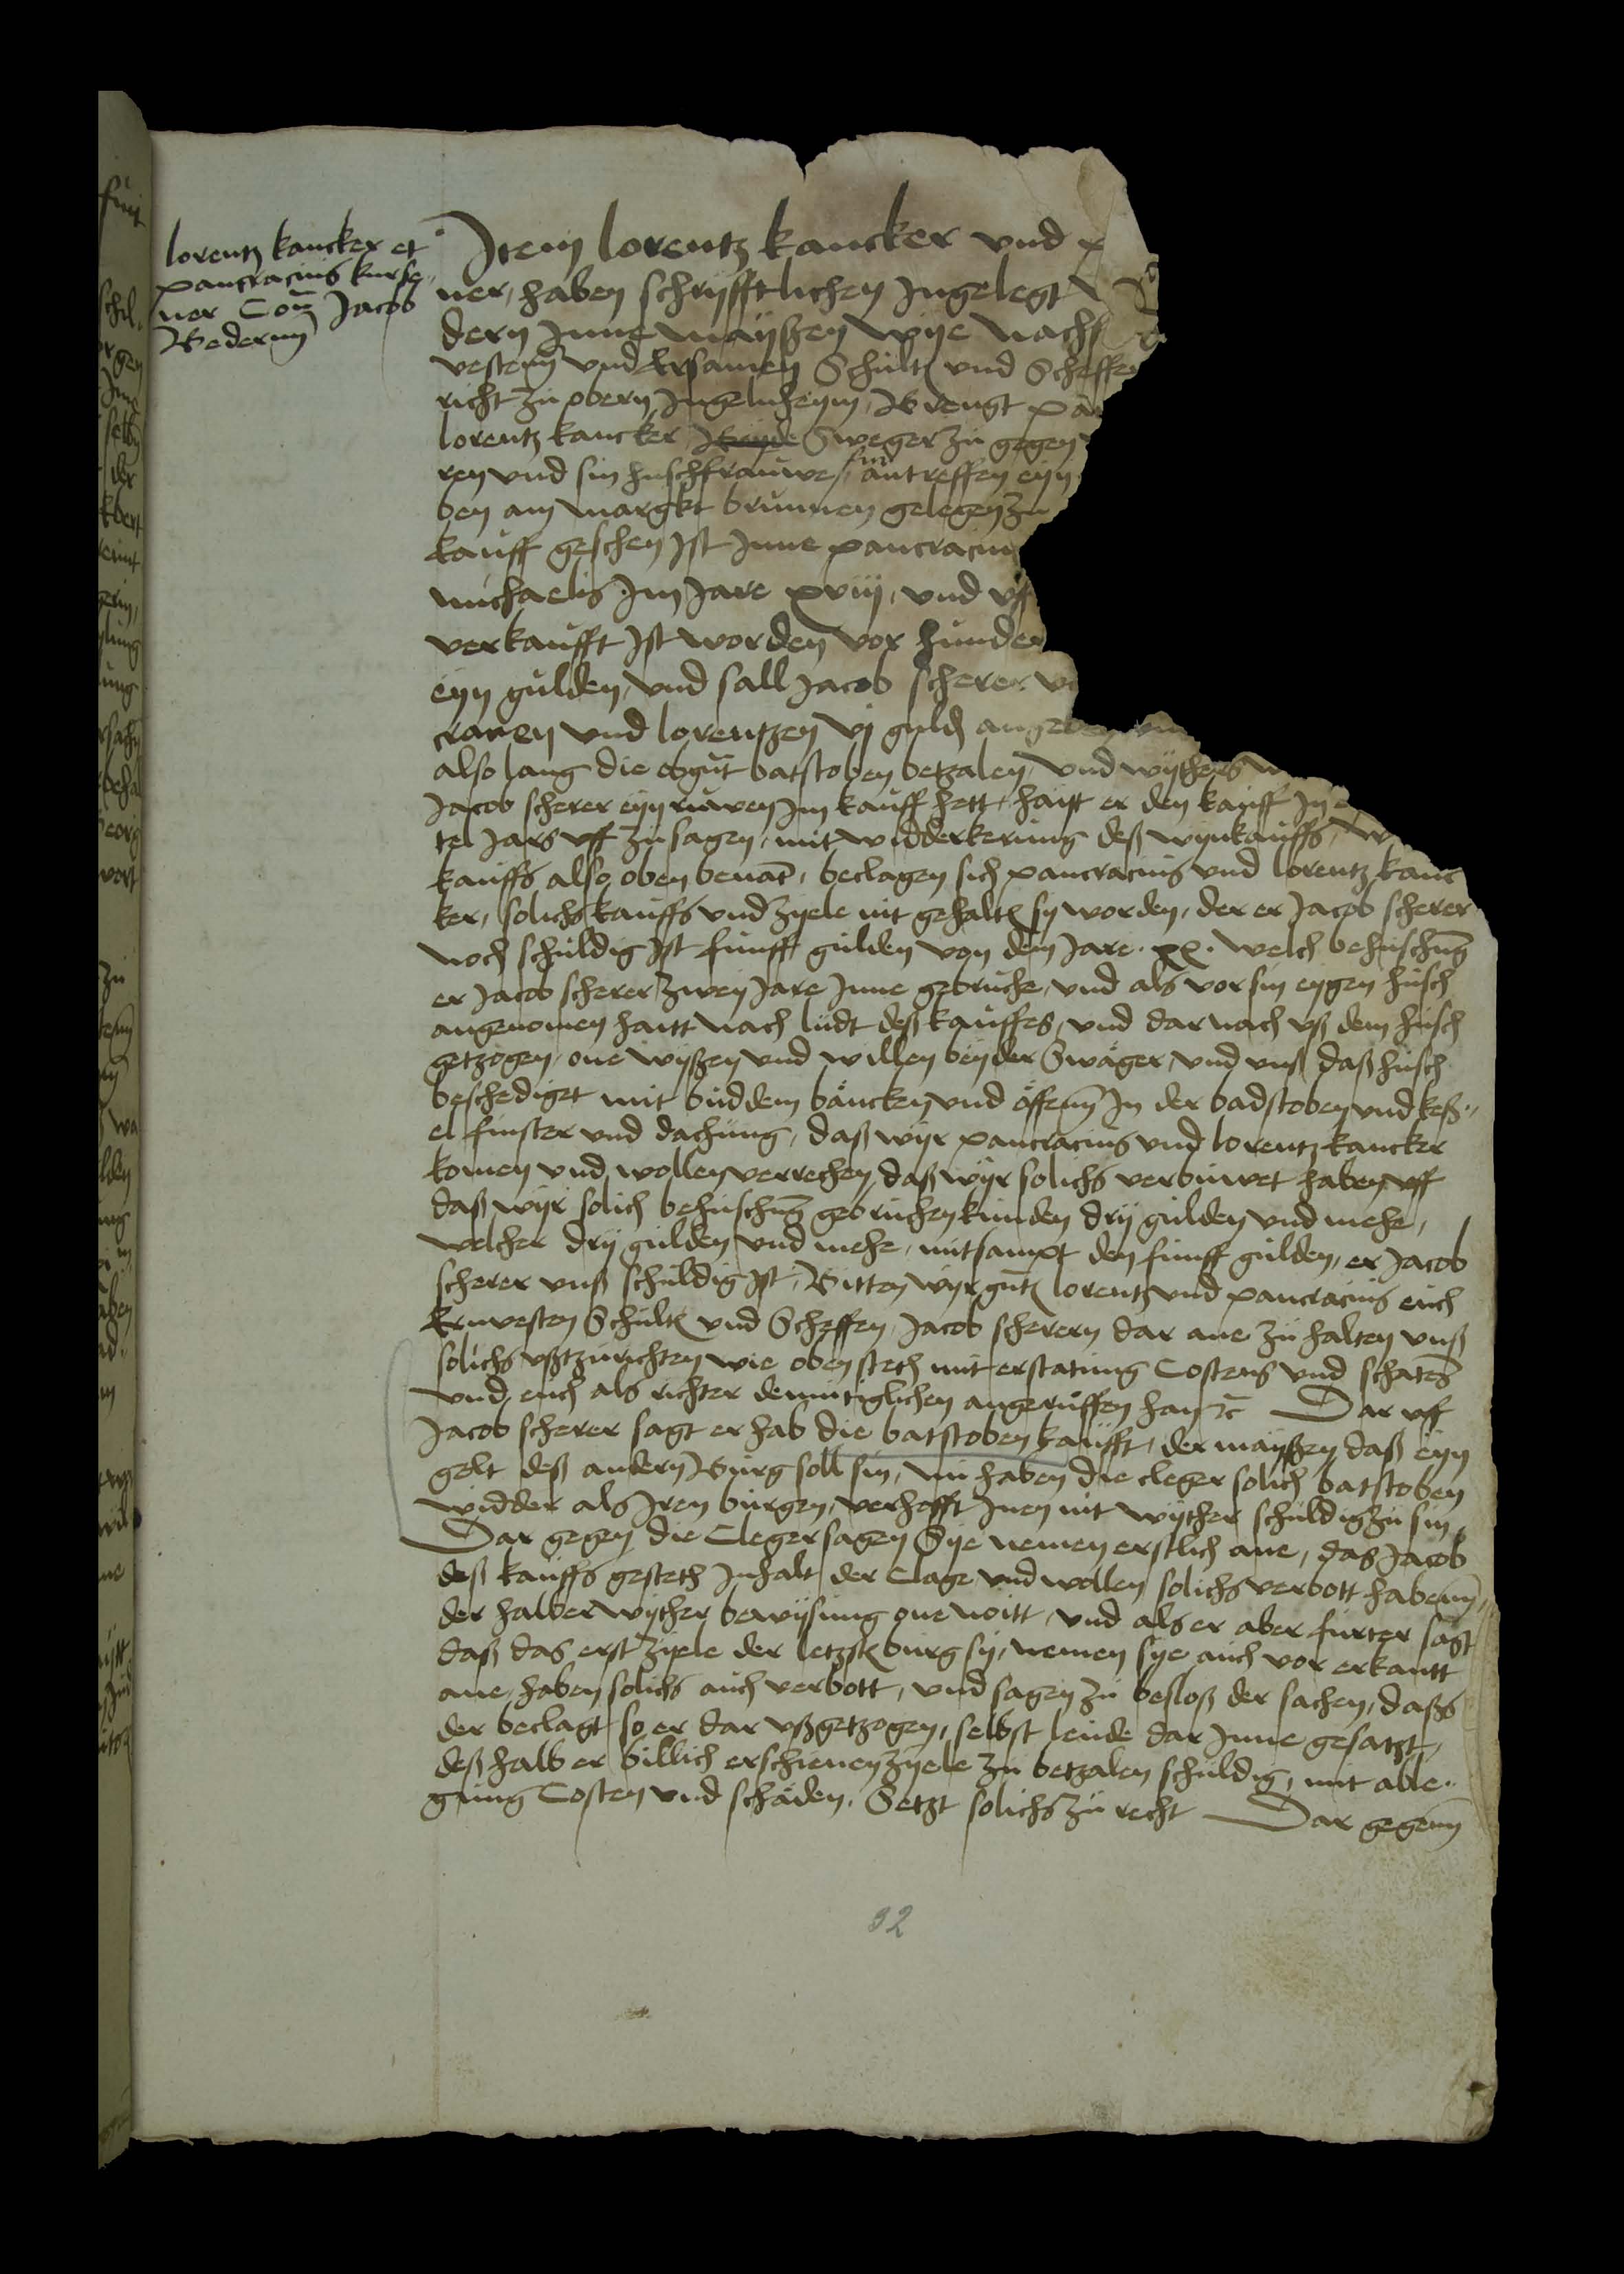 lorentz kancker et
pancracius kurse„
ner Con̄ Jacob
Bedernn
Item lorentz kancker vnd p
ner, haben schryfftlichen Ingelegt
dern Inne mayßen wye nach
vestenn vnd Ersamen Schult vnd Scheffe
richt zu obern Ingelnheym, Brengt pan
lorentz kancker Beyde Sweger zu gegen
ren vnd sin huschfrauwe, antreffen eyn
ben am margkt brunnen gelegen zu
kauff geschen Ist Inne pancracius
michaelis Im Jare xviij, vnd vff
verkaufft Ist worden vor hunder
eyn gulden, vnd sall Jacob scherer
craren vnd lorentzen vj guld angeben
also lang die obgūt batstoben betzalen, vnd wythers
Jacob scherer eyn ruwen Im kauff hett, haitt er den kauff In
tel Jars vff zu sagen, mit widderkerung deß wynkauffs,
kauffs also oben benāt, beclagen sich pancracius vnd lorentz kanc
ker, solichs kauffs vnd zyele nit gehalt sy worden, der er Jacob scherer
noch schuldig Ist funff gulden von dem Jare xx. welch behuschūg
er Jacob scherer zwey Jare Inne gebruche, vnd als vor sin eygen husch
angenomen haitt nach ludt deß kauffes, vnd dar nach vß dem husch
getzogen, one wyßen vnd willen beyder Swäger, vnd vnß daß husch
beschediget mit büddem bäncken vnd äffenn In der badstoben vnd keß„
el finster vnd dachung, daß wyr pancracius vnd lorentz kancker
komen vnd wollen verrechen, daß wyr solichs verbuwet haben vff
daß wyr solich behuschūg gebruchen kunden dry gulden vnd mehe,
welcher dry gulden vnd mehe, mitsampt den funff gulden, er Jacob
scherer vnß schuldig Ist, Bitten wyr gūt lorentz vnd pancracius euch
Ernvesten Schult vnd Scheffen, Jacob scherern dar ane zu halten vnß
solichs vßtzurichten wie oben steth mit erstatung Costens vnd schates
vnd euch als richter demutiglichen angeruffen han ꝛc Dar vff
Jacob scherer sagt er hab die batstoben kaufft, der mayßen daß eyn
gelt deß andern Burg soll sin, nu haben die cleger solich batstoben
widder als Iren burgen, verhofft Inen nit wyther schuldig zu sin
Dar gegen die Cleger sagen Sye nemen erstlich ane, das Jacob
deß kauffs gesteth Inhalt der Clage vnd wollen solichs verbott habenn,
der halber wyther bewysung one noitt, vnd als er aber further sagt
daß das erst zyele der letzst burg sy, nemen sye auch vor erkantt
ane, haben solichs auch verbott, vnd sagen zu besloß der sachen, daßs
der beclagt so er dar vßgetzogen, selbst leude dar Inne gesatzt,
deß halb er billich erschienen zyele zu betzalen schuldig, mit able„
gung Costen vnd schäden, Setzt solichs zu recht Dar gegenn
92